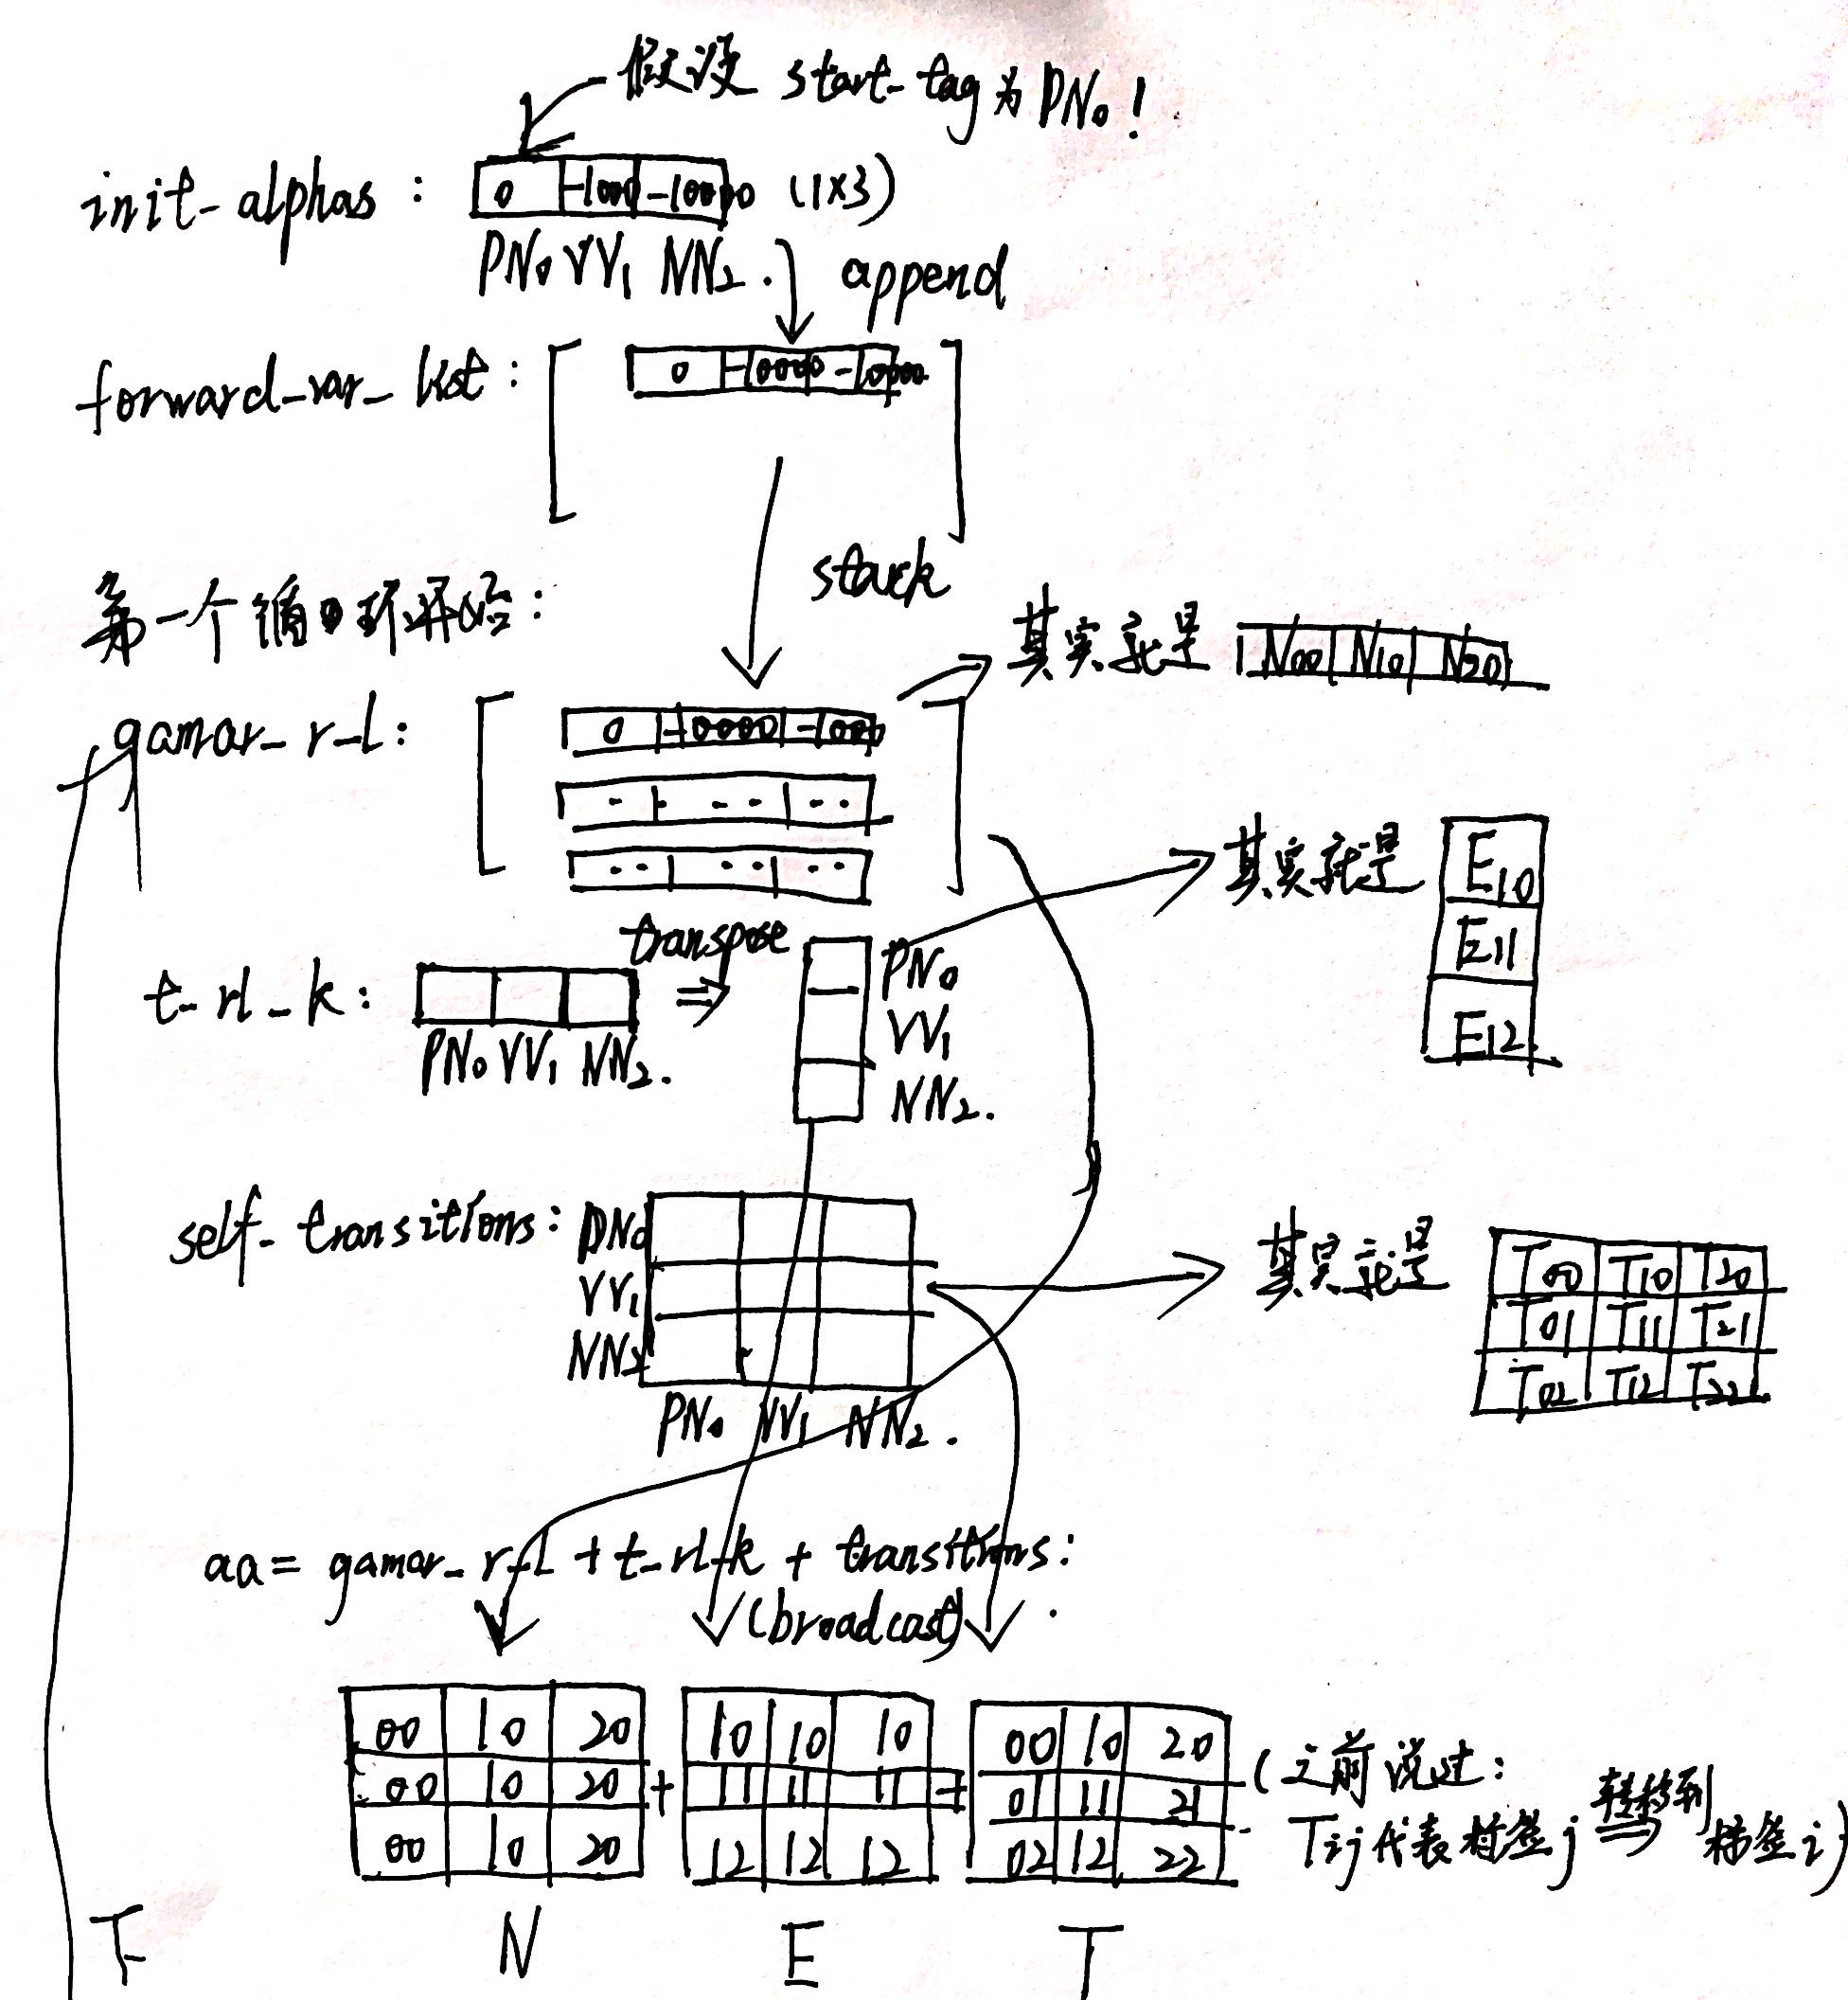 假设 start-tag为PN0!
init-alphas: 0 -1000 -10000 (1×3)
PN0 VV1 NN2.
append
forward_var_list: 0 -10000 -10000
stack
第一个循环开始:
其实就是 N00 N10 N20
gamar_r_l: 0 -10000 -1000
-- --- --
-- -- --
其实就是
E10
E11
E12
transpose
t_rl_k: ⇒
PN0 VV1 NN2.
PN0
VV1
NN2.
self-transitions: PN0
VV1
NN2
PN0 VV1 NN2.
其实就是
T00 T10 T20
T01 T11 T21
T02 T12 T22
aa= gamar_r_l + t_rl_k + transitions:
(broadcast)
00 10 20
00 10 20
00 10 20
+
10 10 10
11 11 11
12 12 12
+
00 10 20
01 11 21
02 12 22
(之前说过:
Tij代表标签j 转移到 标签i)
N E T